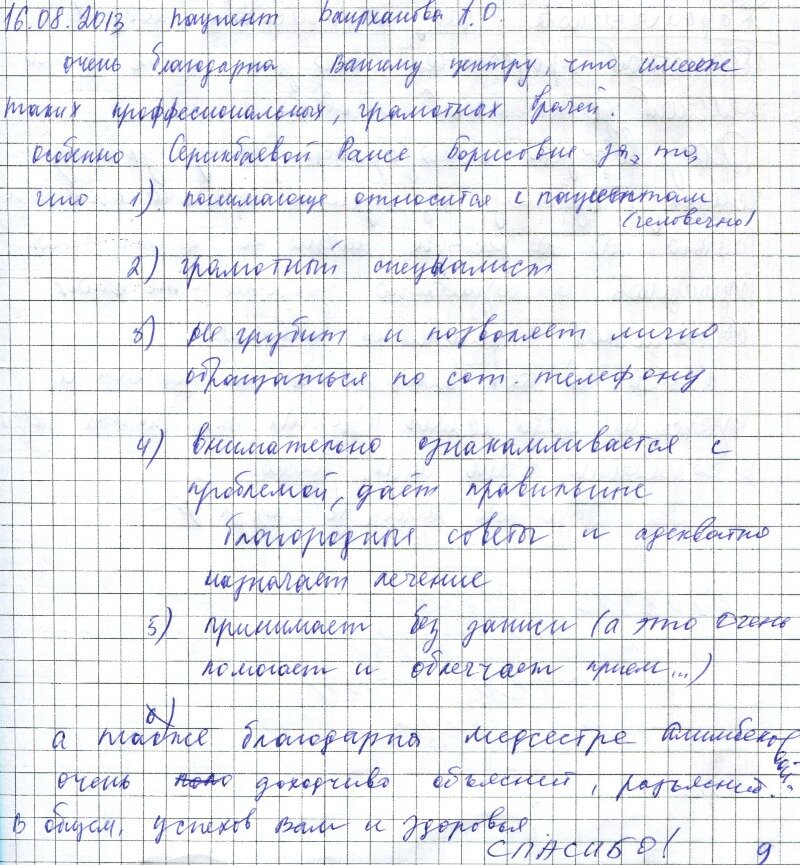 16.08.2013 пациент Баирханова А.О.
очень благодарна Вашему центру, что имеете
таких проффессиональных, грамотнах врачей.
особенно Серикбаевой Раисе Борисовне за, то,
что 1) понимающе относится к пациентам
(человечно)
2) грамотный специалист
3) не грубит и позволяет лично
обращаться по сот. телефону
4) внимательно ознакамливается с
проблемой, даёт правильние
благородные советы и адекватно
назначает лечение
5) принимает без записи (а это очень
помогает и облегчает прием...)
а также благодарна медсестре Алимбековой.
очень доходчиво объяснит, разъяснит.
В общем, успехов Вам и здоровья
СПАСИБО!
9